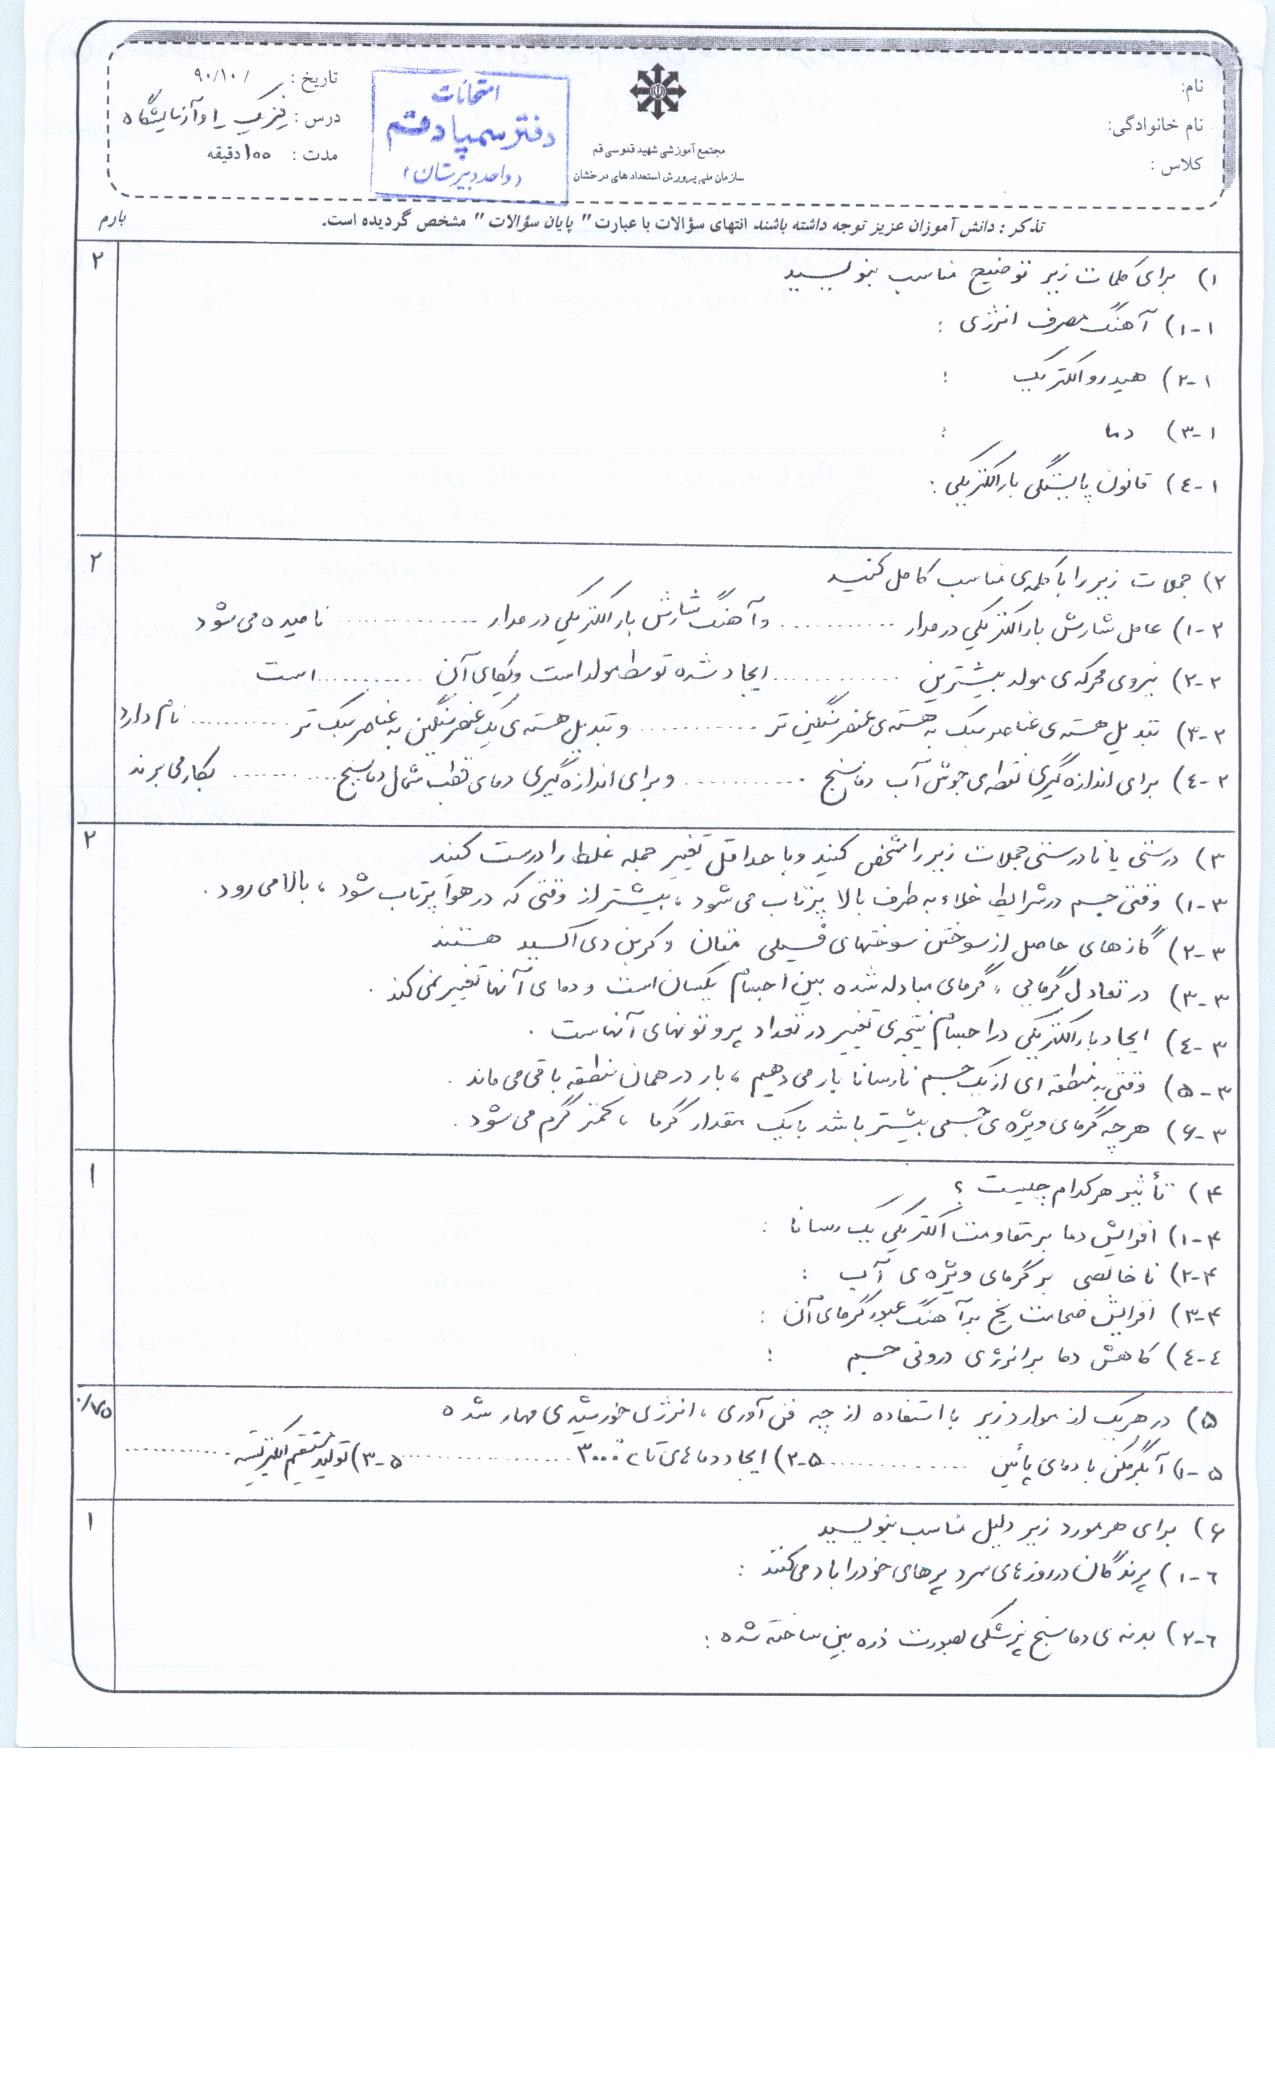 نام:
نام خانوادگی:
کلاس :
مجتمع آموزشی شهید قدوسی قم
سازمان ملی پرورش استعدادهای درخشان
امتحانات
دفتر سمپاد قم
(واحد دبیرستان)
تاریخ : / ۹۰/۱۰
درس : فیزیک ۱ و آزمایشگاه
مدت : ۱۰۰ دقیقه
تذکر : دانش آموزان عزیز توجه داشته باشند انتهای سؤالات با عبارت " پایان سؤالات " مشخص گردیده است.
بارم
۱) برای کلمات زیر توضیح مناسب بنویسید ۲
۱-۱) آهنگ مصرف انرژی :
۱-۲) هیدروالکتریک :
۱-۳) دما :
۱-٤) قانون پایستگی بار الکتریکی :
۲) جملات زیر را با کلمه‌ی مناسب کامل کنید ۲
۲-۱) عامل شارش بار الکتریکی در مدار ........... و آهنگ شارش بار الکتریکی در مدار ............... نامیده می شود
۲-۲) نیروی محرکه ی مولد بیشترین ............. ایجاد شده توسط مولد است و یکای آن ............ است
۲-۳) تبدیل هسته ی عناصر سبک به هسته ی عنصر سنگین تر ............ و تبدیل هسته ی یک عنصر سنگین به عناصر سبک تر ........... نام دارد
۲-٤) برای اندازه گیری نقطه ی جوش آب دماسنج ............ و برای اندازه گیری دمای قطب شمال دماسنج ............ بکار می برند
۳) درستی یا نادرستی جملات زیر را مشخص کنید و با حداقل تغییر جمله غلط را درست کنید ۲
۳-۱) وقتی جسم در شرایط خلاء به طرف بالا پرتاب می شود ، بیشتر از وقتی که در هوا پرتاب شود ، بالا می رود .
۳-۲) گازهای حاصل از سوختن سوختهای فسیلی متان و کربن دی اکسید هستند
۳-۳) در تعادل گرمایی ، گرمای مبادله شده بین اجسام یکسان است و دمای آنها تغییر نمی کند .
۳-٤) ایجاد بار الکتریکی در اجسام نتیجه ی تغییر در تعداد پروتونهای آنهاست .
۳-۵) وقتی به منطقه ای از یک جسم نارسانا بار می دهیم ، بار در همان منطقه باقی می ماند .
۳-۶) هر چه گرمای ویژه ی جسمی بیشتر باشد با یک مقدار گرما ، کمتر گرم می شود .
۴) تأثیر هر کدام چیست ؟ ۱
۴-۱) افزایش دما بر مقاومت الکتریکی یک رسانا :
۴-۲) ناخالصی بر گرمای ویژه ی آب :
۴-۳) افزایش ضخامت یخ بر آهنگ عبور گرمای آن :
٤-٤) کاهش دما بر انرژی درونی جسم :
۵) در هریک از موارد زیر با استفاده از چه فن آوری ، انرژی خورشیدی مهار شده ۰/۷۵
۵-۱) آبگرمکن با دمای پائین ................ ۵-۲) ایجاد دماهای تا ۳۰۰۰°C ................ ۵-۳) تولید مستقیم الکتریسیته ............
۶) برای هر مورد زیر دلیل مناسب بنویسید ۱
٦-۱) پرندگان در روزهای سرد پرهای خود را باد می کنند :
٦-۲) بدنه ی دماسنج پزشکی بصورت ذره بین ساخته شده :